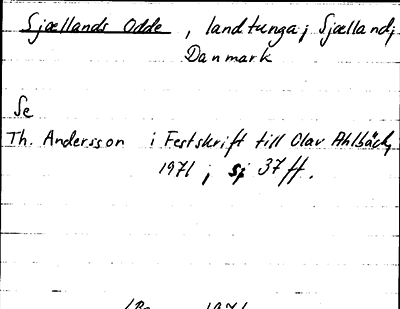 Sjællands Odde, landtunga i Sjælland,
Danmark
Se
Th. Andersson i Festskrift till Olav Ahlbäck,
1971, s. 37 ff.
1971